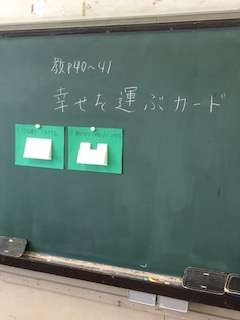 教P40〜41
幸せを運ぶカード